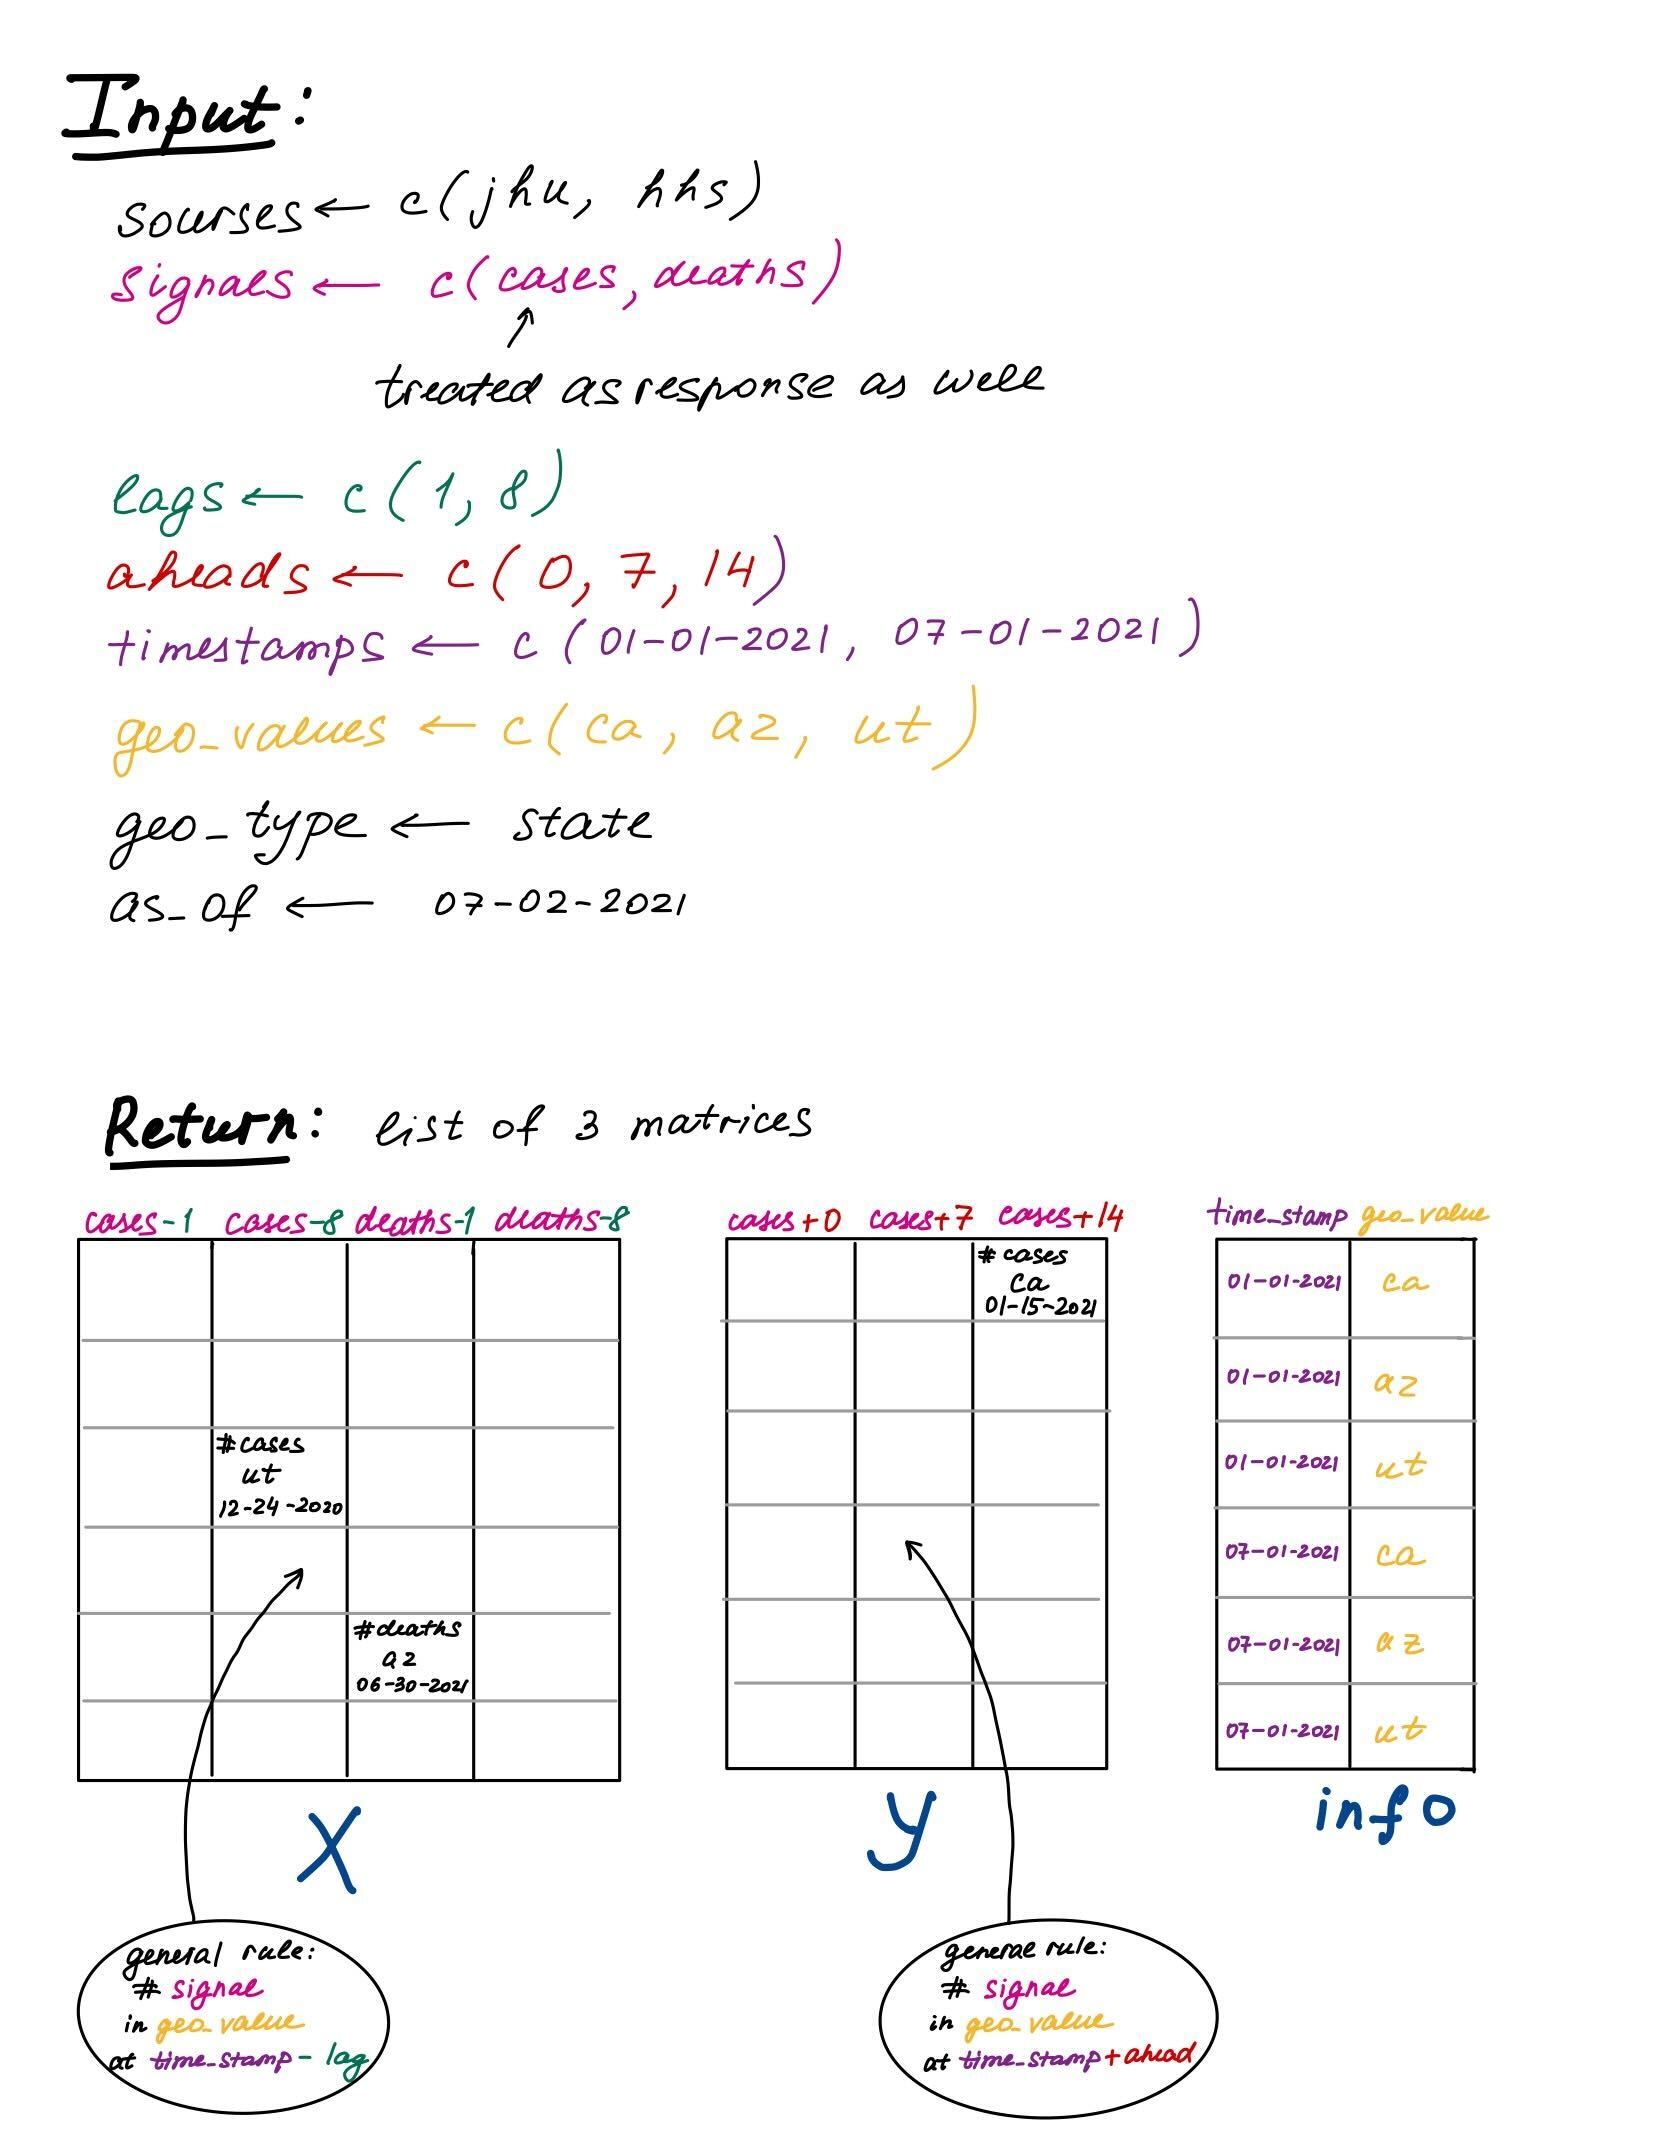 Input:
sourses ← c(jhu, hhs)
signals ← c(cases, deaths)
treated as response as well
lags ← c(1, 8)
aheads ← c(0, 7, 14)
timestamps ← c(01-01-2021, 07-01-2021)
geo_values ← c(ca, az, ut)
geo_type ← state
as_of ← 07-02-2021
Return: list of 3 matrices
cases-1 cases-8 deaths-1 deaths-8
#cases
ut
12-24-2020
#deaths
az
06-30-2021
X
general rule:
# signal
in geo_value
at time_stamp - lag
cases+0 cases+7 cases+14
# cases
ca
01-15-2021
y
general rule:
# signal
in geo_value
at time_stamp+ahead
time_stamp geo_value
01-01-2021 ca
01-01-2021 az
01-01-2021 ut
07-01-2021 ca
07-01-2021 az
07-01-2021 ut
info